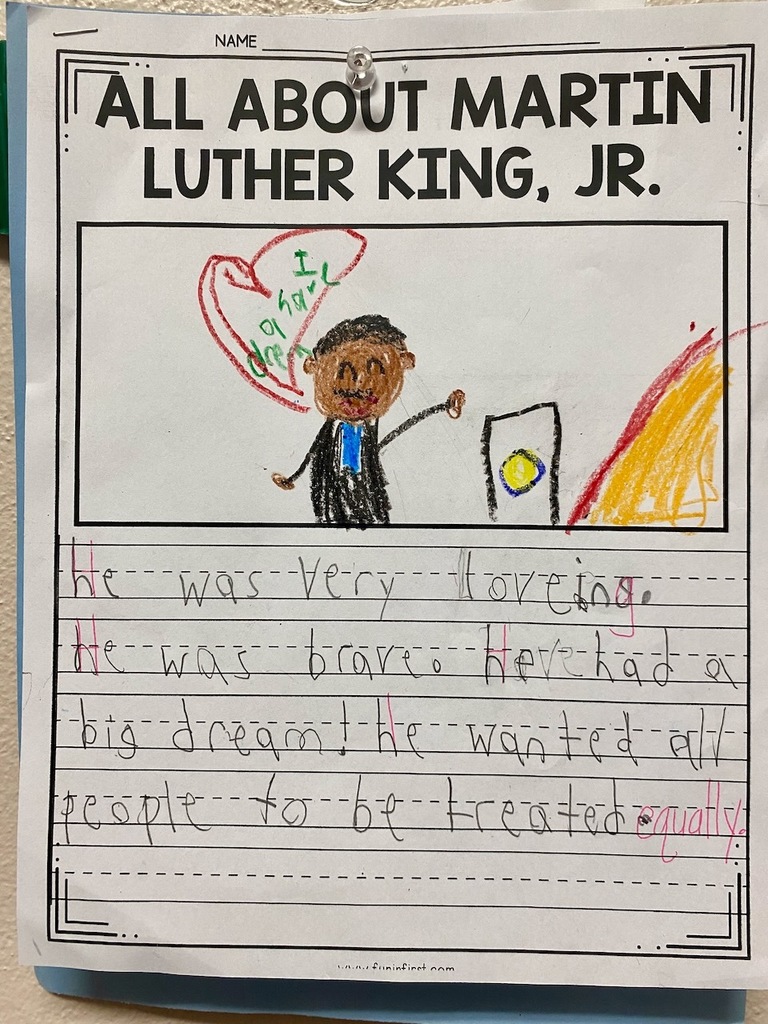 NAME
ALL ABOUT MARTIN
LUTHER KING, JR.
I
have
a
drem
He was very loveing.
He was brave. He had a
big dream! He wanted all
people to be treated equally.
www.funinfirst.com